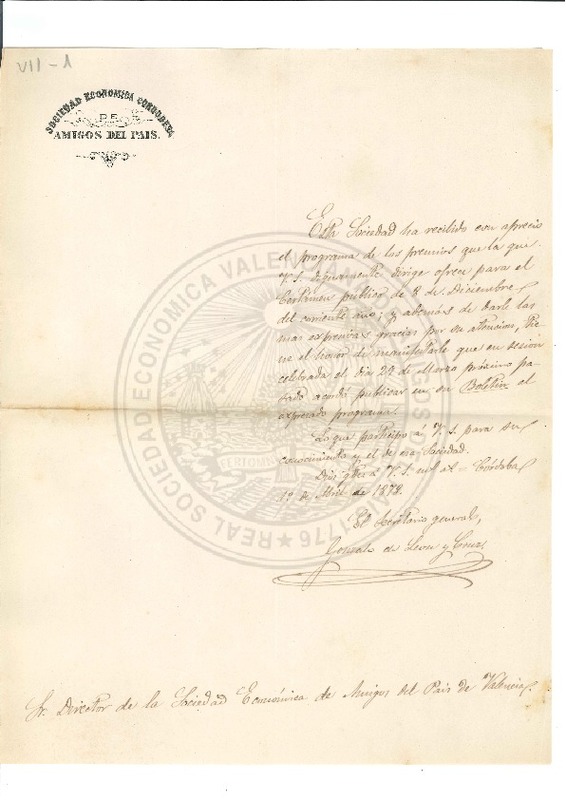 VII-1
SOCIEDAD ECONOMICA CORDOBESA
DE
AMIGOS DEL PAIS.
Esta Sociedad ha recibido con aprecio
el programa de los premios que la que
V. S. dignamente dirige ofrece para el
Certámen público de 8 de Diciembre
del corriente año; y además de darle las
mas espresivas gracias por su atencion, tie-
ne el honor de manifestarle que en sesion
celebrada el dia 29 de Marzo próximo pa-
sado acordó publicar en su Boletin el
expresado programa.
Lo que participo á V. S. para su
conocimiento y el de esa Sociedad.
Dios gde á V. S. ms as - Córdoba
1º de Abril de 1878.
El Secretario general,
Gonzalo de Leon y Cruz
Sr. Director de la Sociedad Económica de Amigos del Pais de Valencia.
REAL SOCIEDAD ECONOMICA VALENCIANA
1776